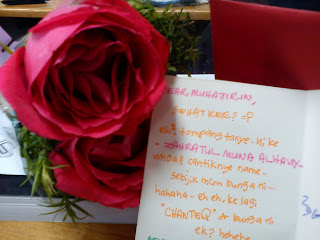 DEAR MUHAJIRIN,
WHAT KHBR? =P
eh² tompang tanye.. ni ke
- ZAHRATUL MUNA ALHAVY-
whoa!! cantiknye name..
sebijik mcm bunga ni...
hahaha.. eh eh, ke lagi
"CHANTEQ" dr bunga ni
ek? hehehe